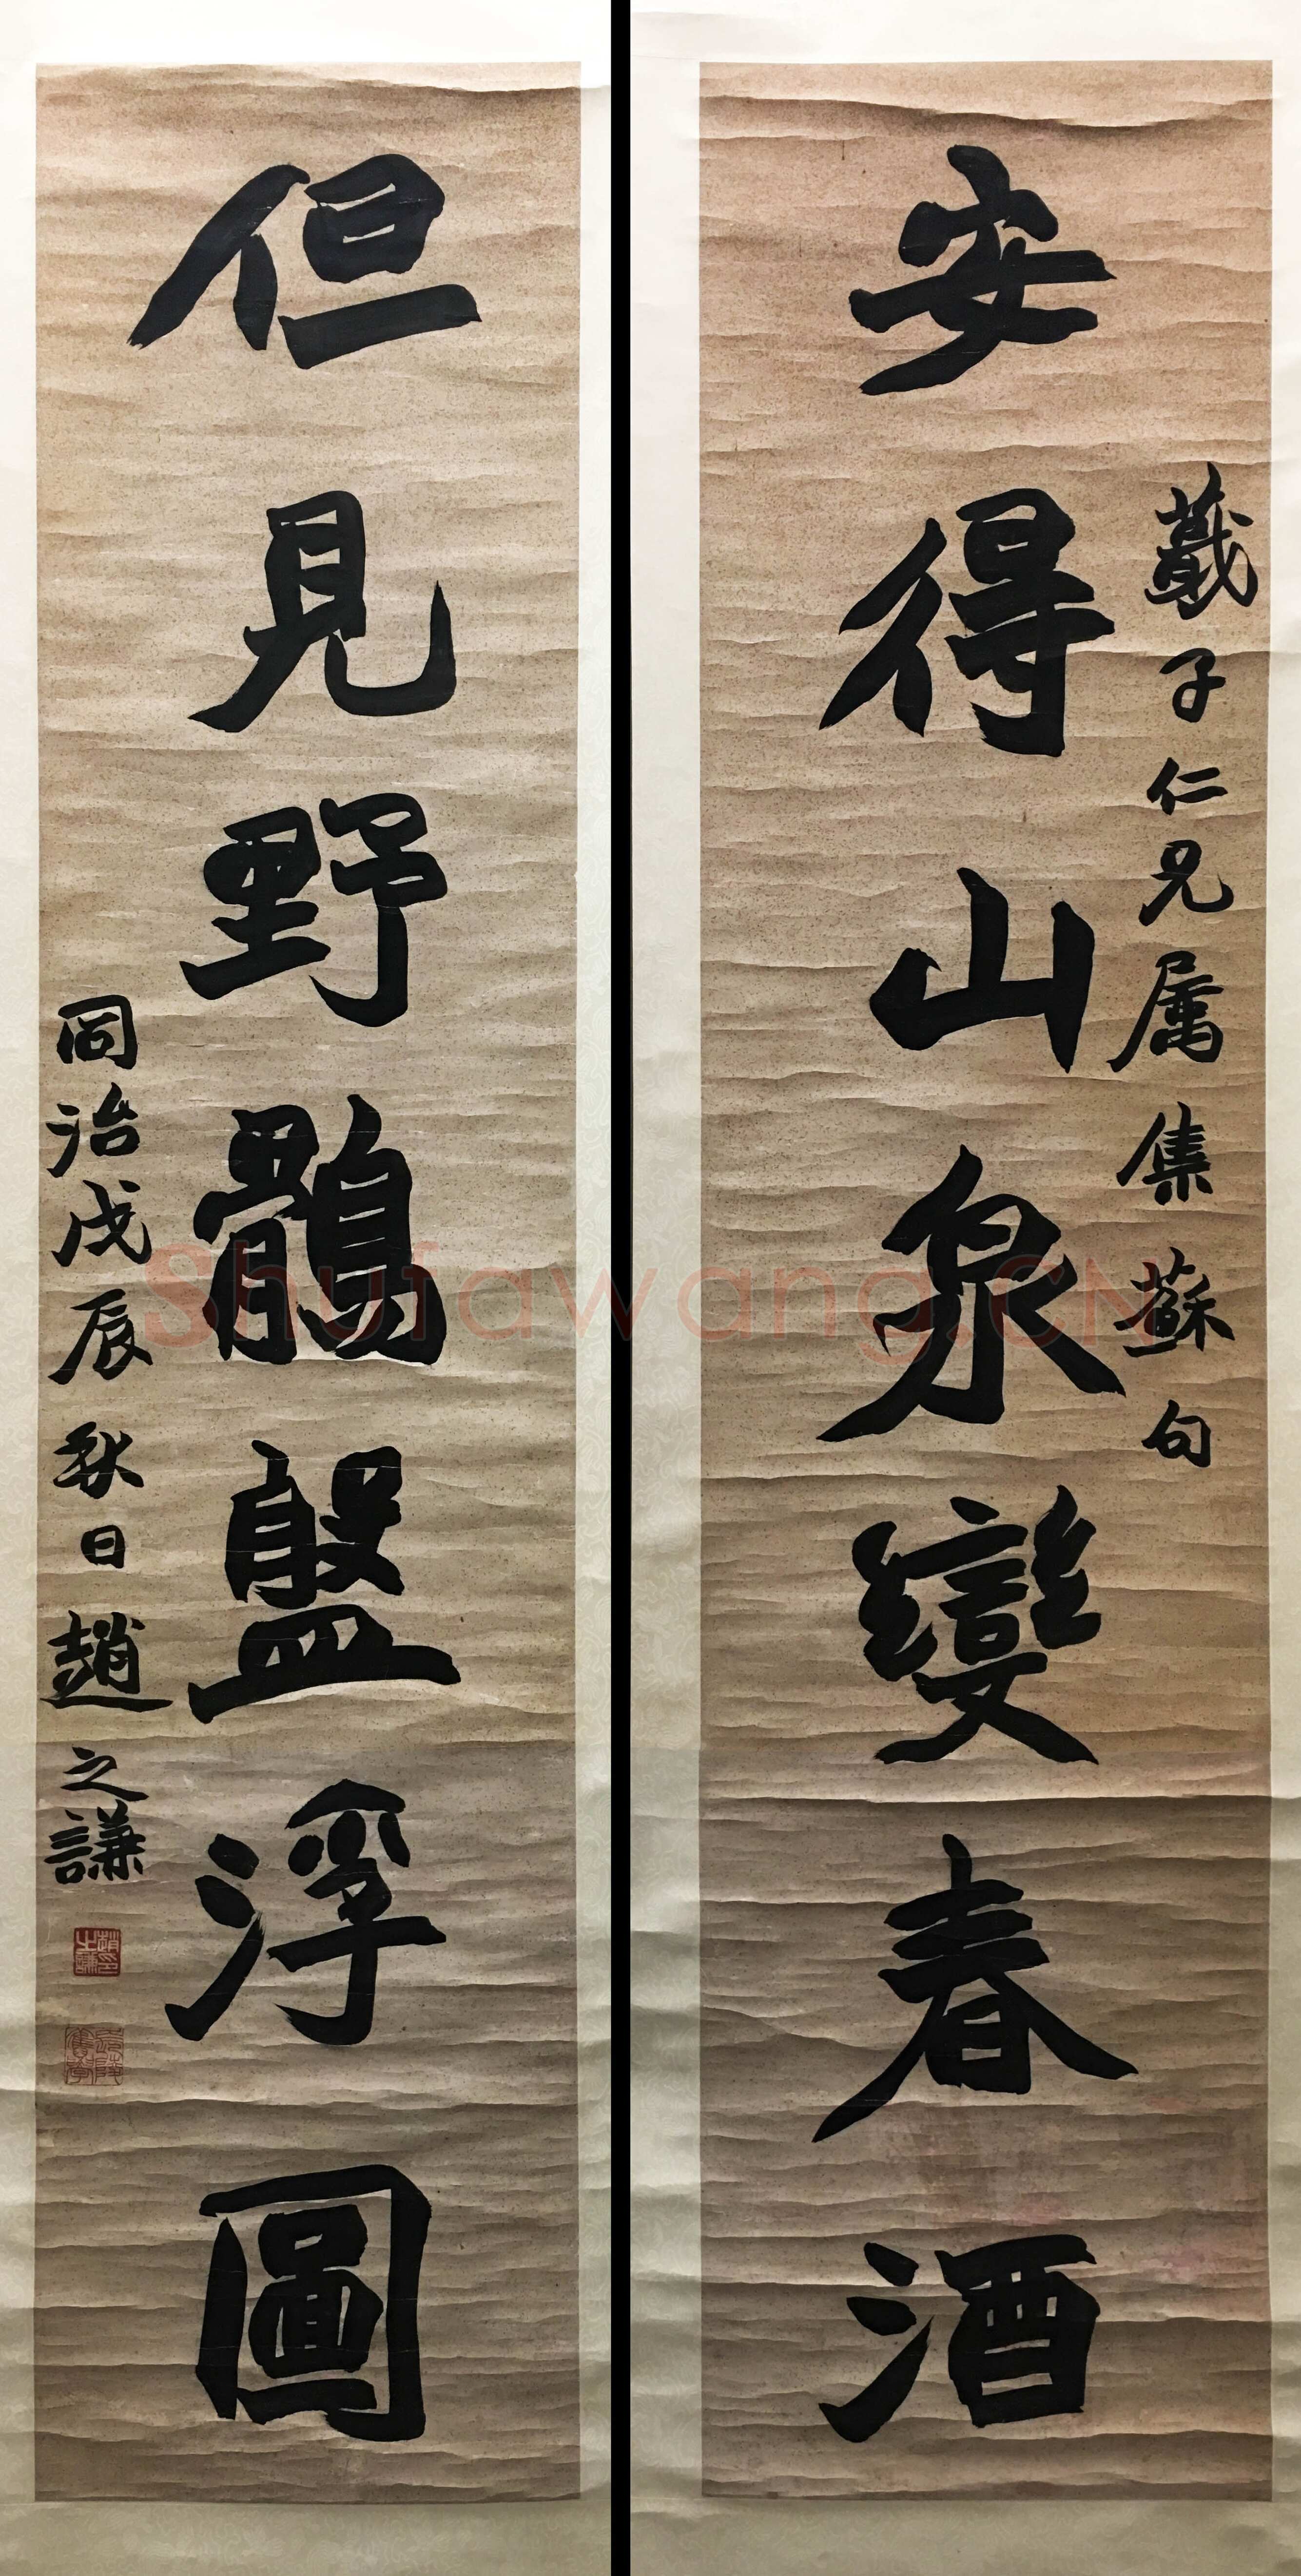 蕺子仁兄属集蘇句
安得山泉變春酒
但見野鶻盤浮圖
同治戊辰秋日趙之謙
趙印之謙
Shufawang.CN